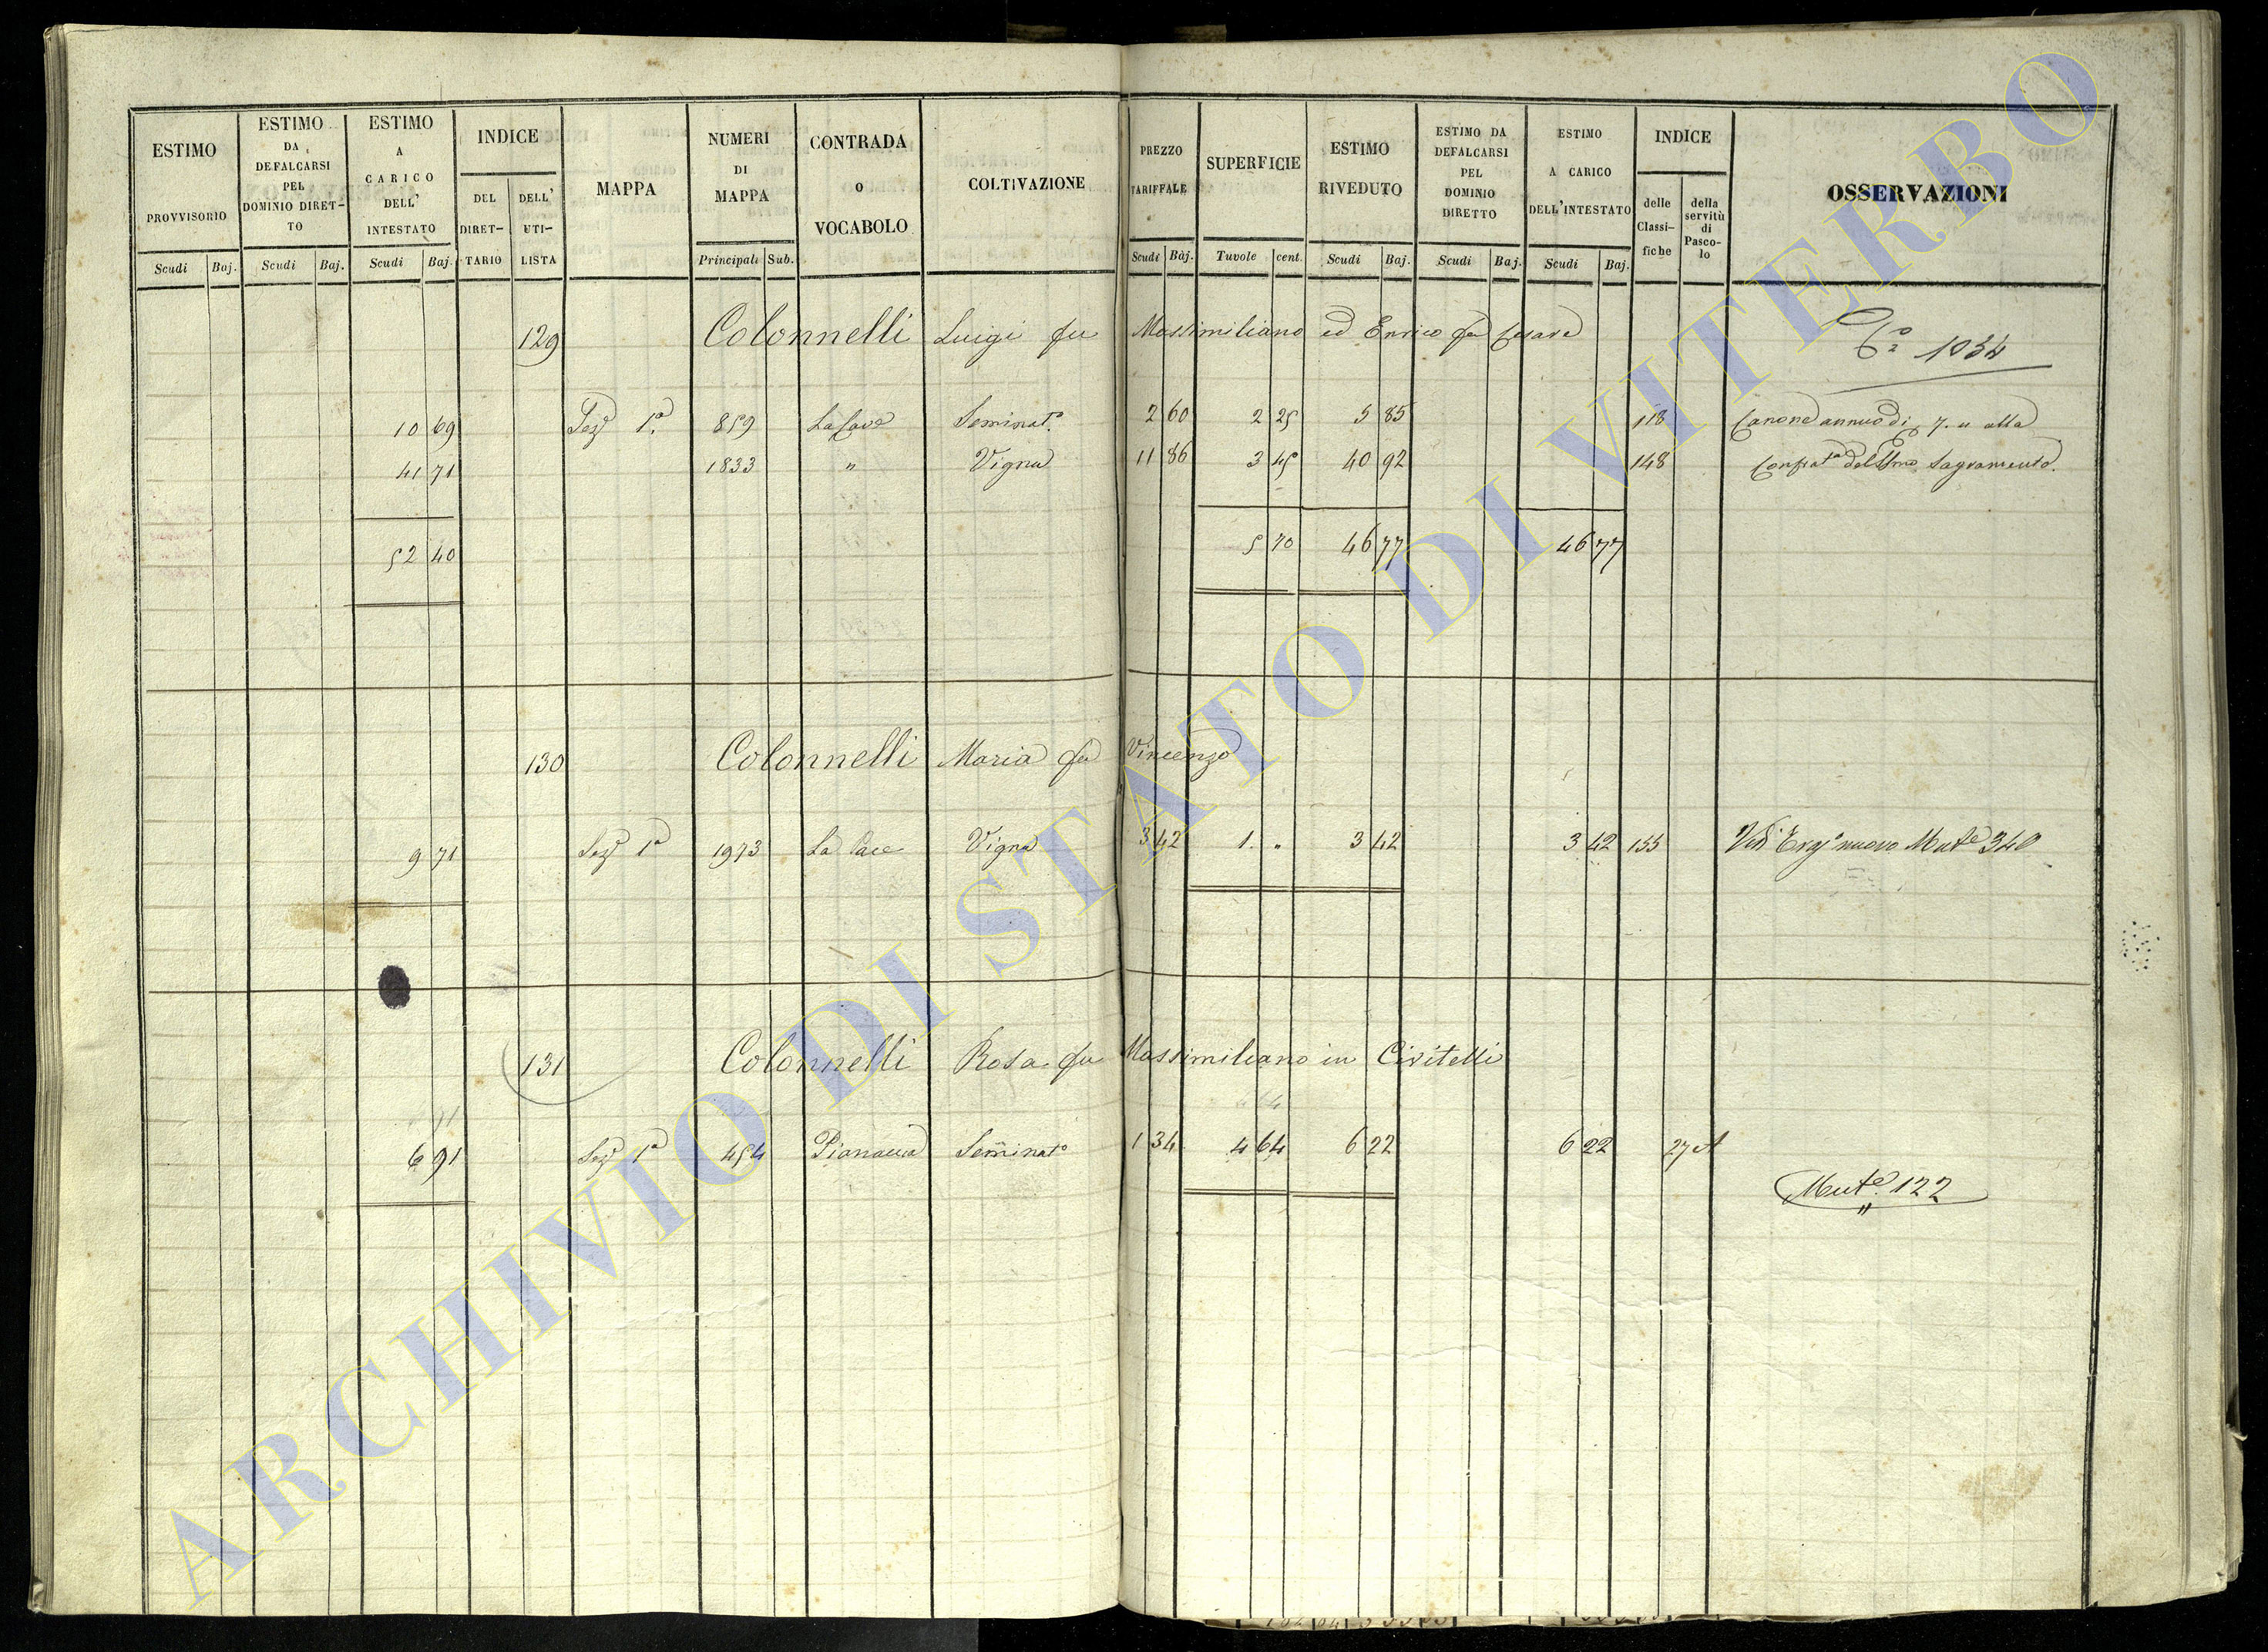 ESTIMO PROVVISORIO
ESTIMO DA DEFALCARSI PEL DOMINIO DIRET-TO
ESTIMO A CARICO DELL' INTESTATO
INDICE
DEL DIRET-TARIO
DELL' UTI-LISTA
MAPPA
NUMERI DI MAPPA
CONTRADA O VOCABOLO
COLTIVAZIONE
PREZZO TARIFFALE
SUPERFICIE
ESTIMO RIVEDUTO
ESTIMO DA DEFALCARSI PEL DOMINIO DIRETTO
ESTIMO A CARICO DELL'INTESTATO
INDICE
delle Classi-fiche
della servitù di Pasco-lo
OSSERVAZIONI
Scudi Baj. Scudi Baj. Scudi Baj. Principali Sub. Scudi Baj. Tavole cent. Scudi Baj. Scudi Baj. Scudi Baj.
129 Colonnelli Luigi fu Massimiliano ed Enrico fu Cesare 1034
10 69 Sezẽ 1ª 859 La Cave Seminatº 2 60 2 25 5 85 118 Canone annuo di 7. alla
41 71 1833 " Vigna 11 86 3 45 40 92 148 Confratª del SSmo Sagramento.
52 40 5 70 46 77 46 77
130 Colonnelli Maria fu Vincenzo
9 71 Sezẽ 1ª 1973 La Pace Vigna 3 42 1. " 3 42 3 42 155 Vedi nuovo Mutẽ 340
131 Colonnelli Rosa fu Massimiliano in Civitelli
6 91 Sezẽ 1ª 454 Pianaccia Seminatº 1 34 4 64 6 22 6 22 27 A
Mutẽ 122
ARCHIVIO DI STATO DI VITERBO